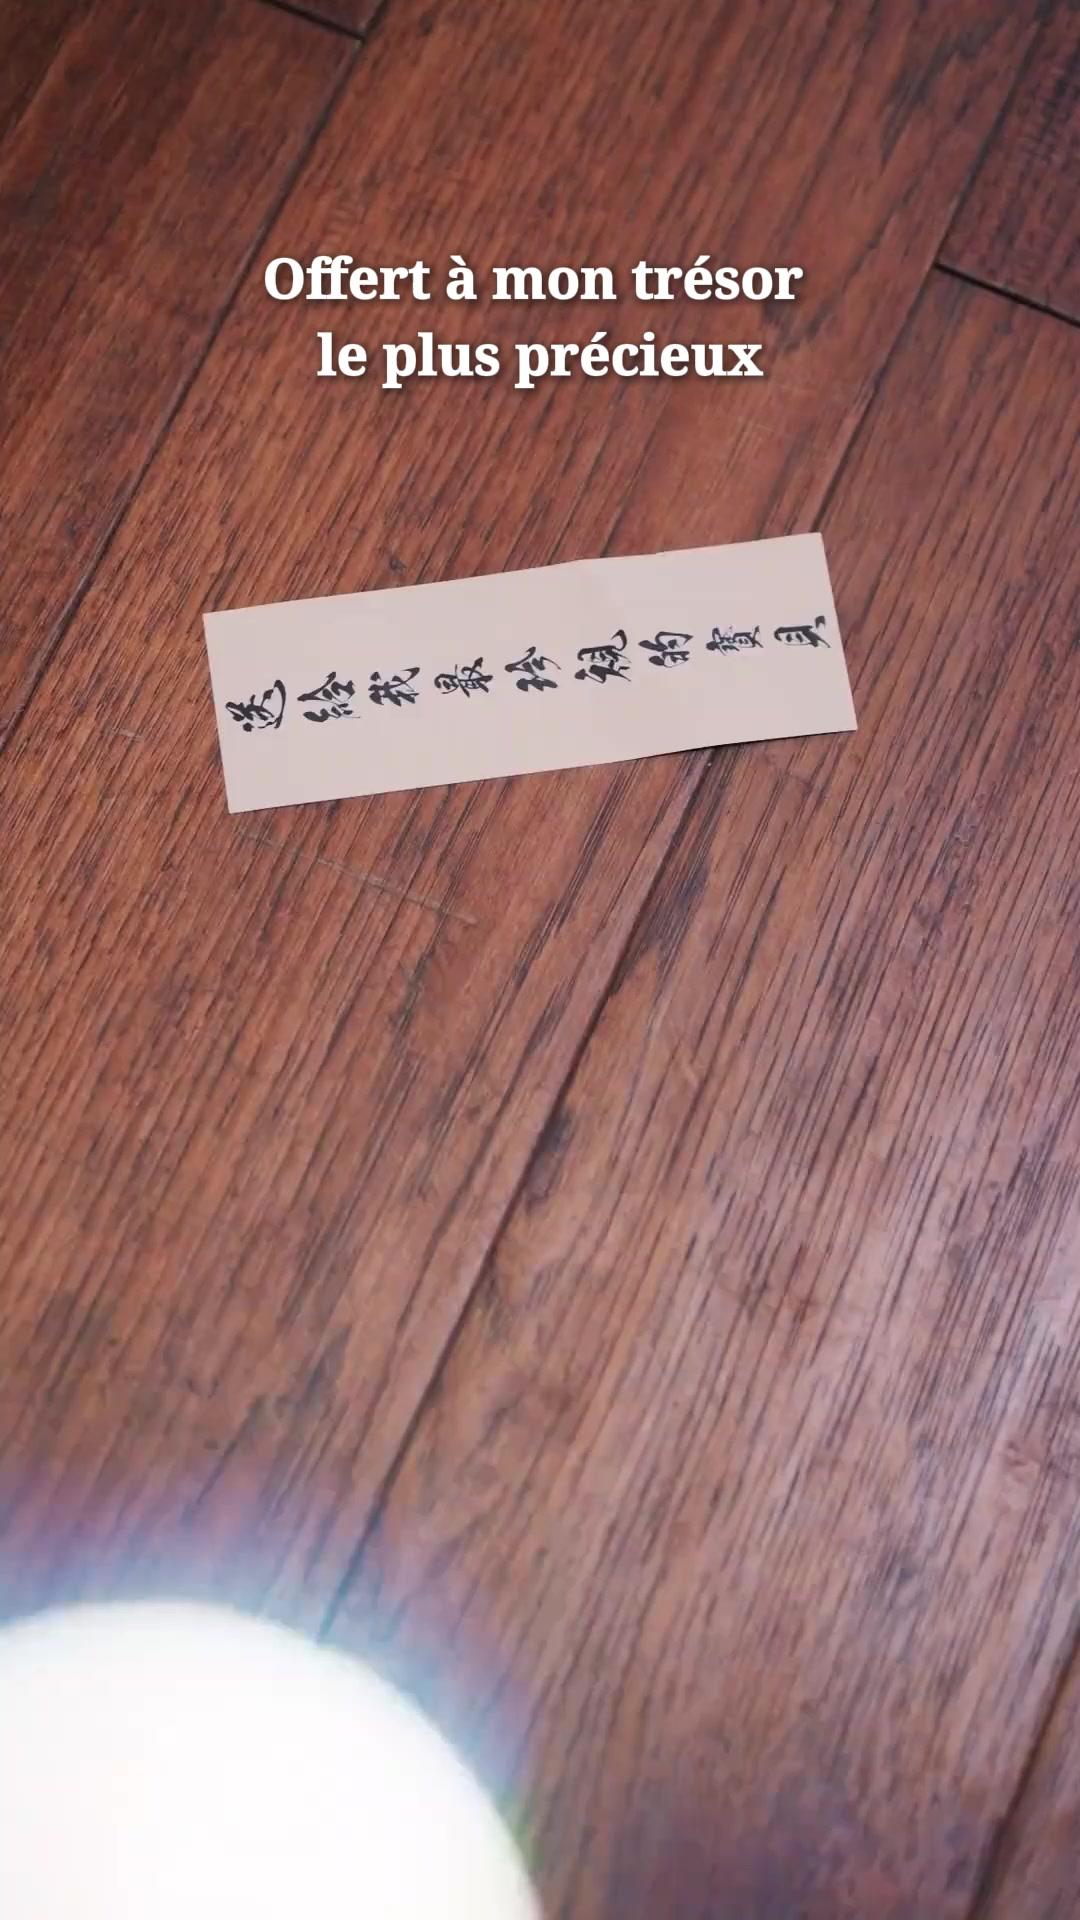 Offert à mon trésor
le plus précieux
送給我最珍視的寶貝